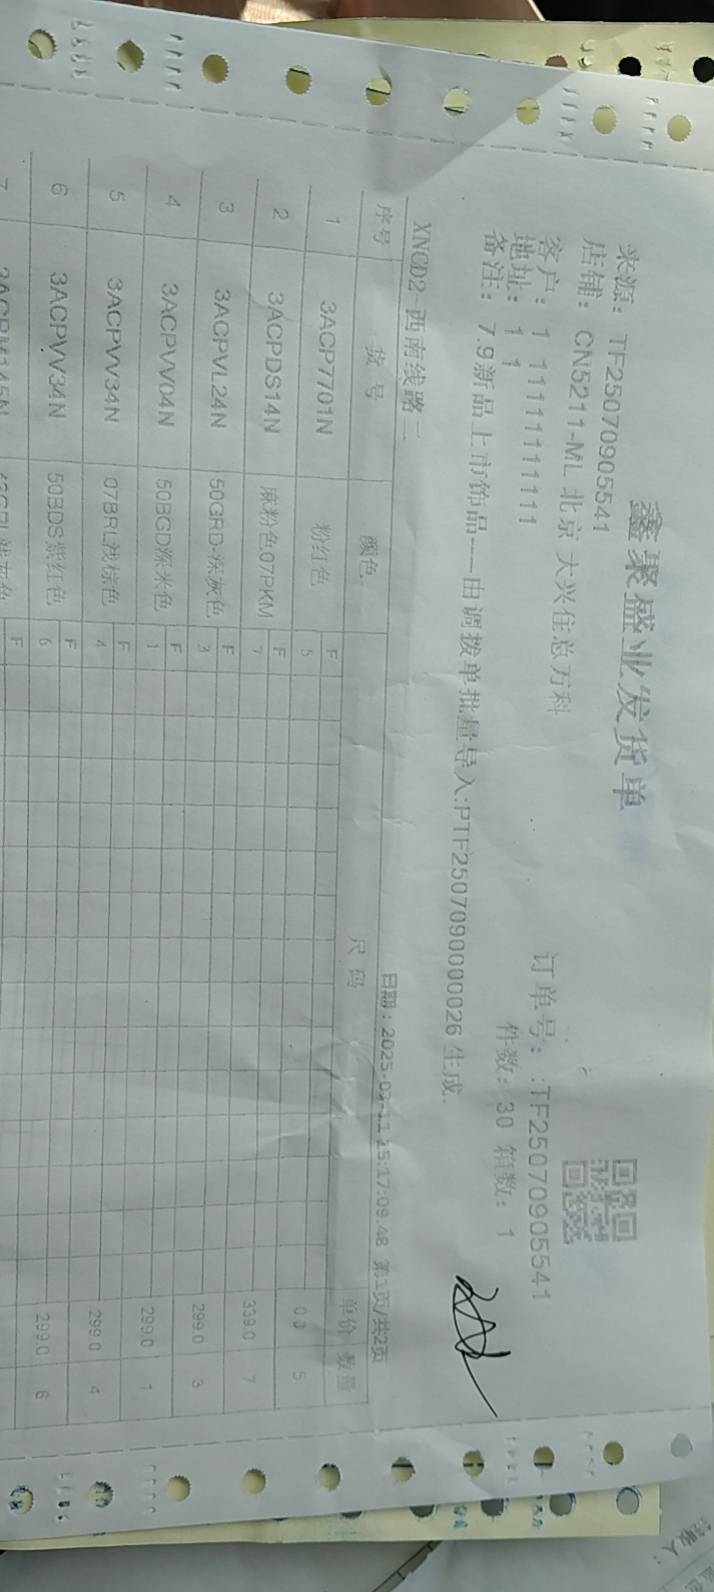 鑫聚盛业发货单
来源: TF25070905541
订单号: :TF25070905541
店铺: CN5211-ML 北京 大兴住总万科
件数: 30 箱数: 1
客户: 1 11111111111
地址: 1 1
备注: 7.9新品上市饰品——由调拨单批量导入:PTF2507090000026 生成.
XNCD2-西南线路二
15:17:09.48 第1页/共2页
序号 货号 颜色 尺码 单价 数量
F
1 3ACP7701N 粉红色 5 0.0 5
F
2 3ACPDS14N 藕粉色07PKM 7 339.0 7
F
3 3ACPVL24N 50GRD-深灰色 3 299.0 3
F
4 3ACPVV04N 50BGD深米色 1 299.0 1
F
5 3ACPVV34N 07BRL浅棕色 4 299.0 4
F
6 3ACPVV34N 50BDS紫红色 6 299.0 6
F
7